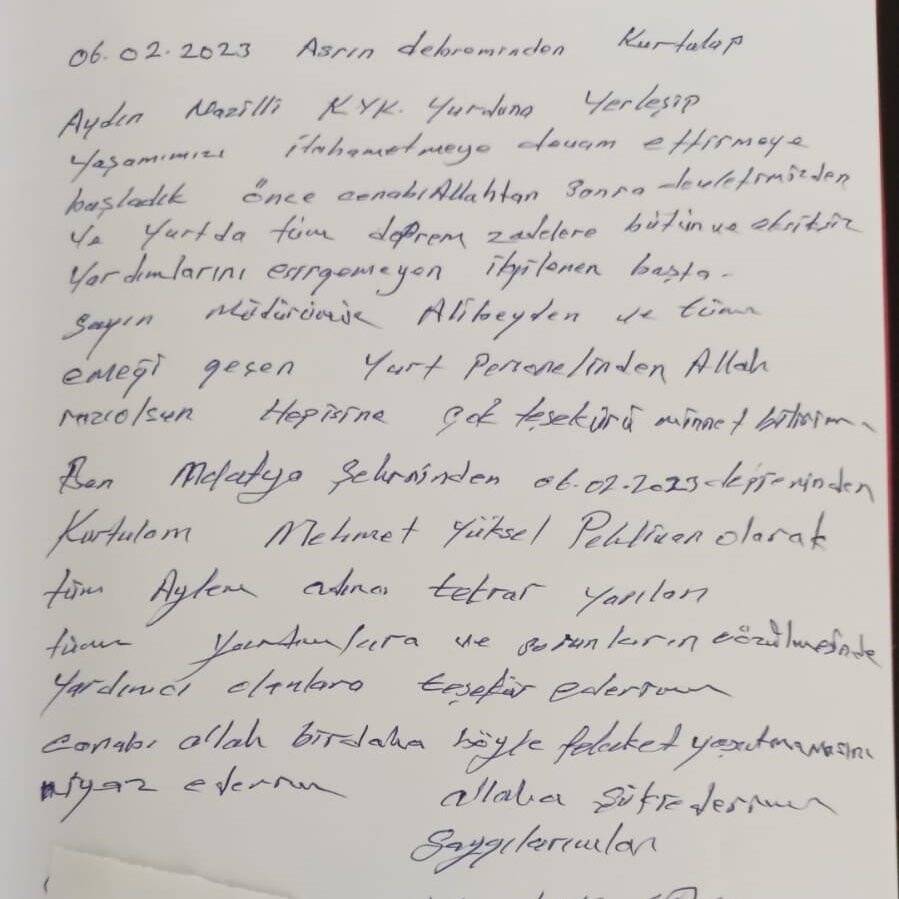 06.02.2023 Asrın debreminden Kurtulup
Aydın Nazilli KYK. Yurduna Yerleşip
Yaşamımızı itahametmeye devam ettirmeye
başladık önce cenabıAllahtan sonra devletimizden
ve yurtda tüm deprem zadelere bütün ve eksiksiz
Yardımlarını esirgemeyen ilgilenen başta
Sayın Müdürümüz Alibeyden ve tüm
emeği geşen Yurt Personelinden Allah
razıolsun Hepisine Çok teşekürü minnet bilirim
Ben Malatya Şehrninden 06.02.2023 depreminden
Kurtulam Mehmet Yüksel Pehlivan olarak
tüm Aylem adına tekrar yapılan
tüm yardımlara ve sorunların çözülmesinde
Yardımcı olanlara teşekür ederim
cenabı allah birdaha böyle felaket yaşatmamasını
niyaz ederim allaha şükrederim
Saygılarımlan